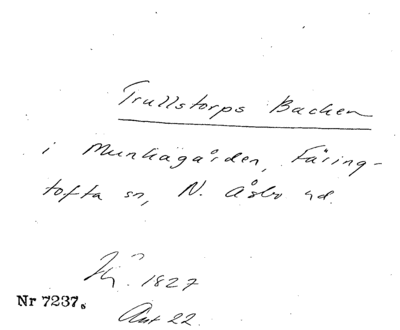 Trullstorps Backen
i Munkagården, Färing-
tofta sn, N. Åsbo hd.
1827
Nr 7237.
Ant 22.